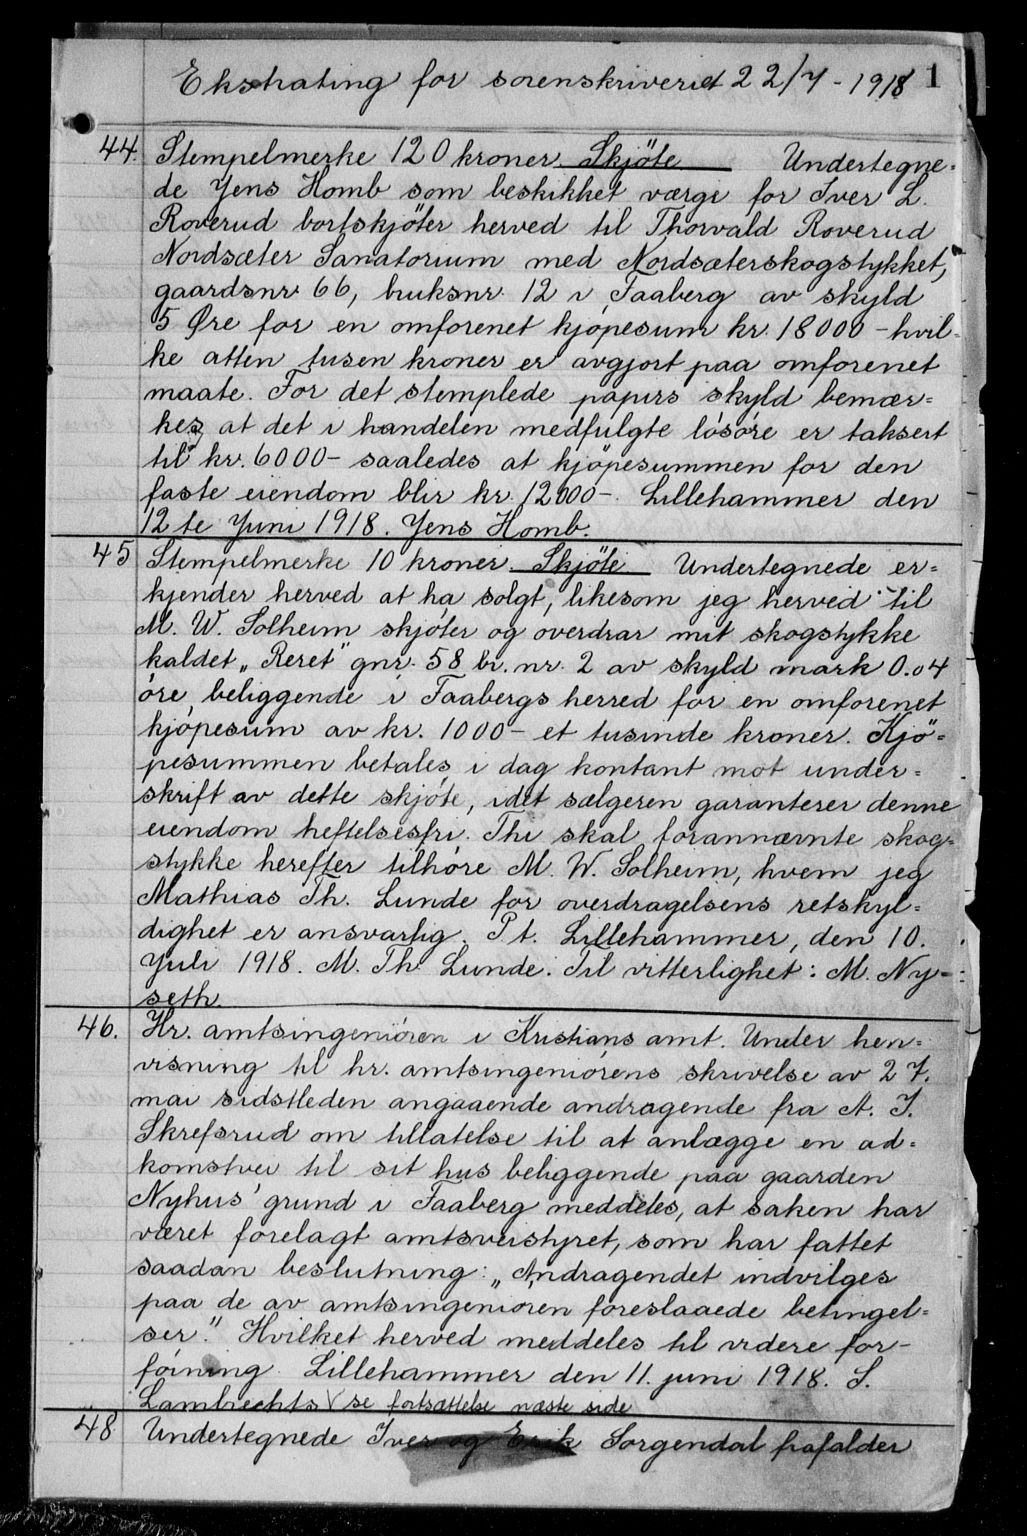 Ekstrating for sorenskriveriet 22/7 - 1918 1
44. Stempelmerke 120 kroner. Skjöte Undertegne-
de Jens Homb som beskikket værge for Iver L.
Roverud bortskjöter herved til Thorvald Roverud
Nordsæter Sanatorium med Nordsæterskogstykket,
gaardsnr. 66, bruksnr. 12 i Faaberg av skyld
5 Øre for en omforenet kjöpesum kr. 18000 - hvil-
ke atten tusen kroner er avgjort paa omforenet
maate. For det stemplede papirs skyld bemær=
kes, at det i handelen medfulgte lösöre er taksert
til kr. 6000 - saaledes at kjöpesummen for den
faste eiendom blir kr. 12000 -. Lillehammer den
12te Juni 1918. Jens Homb.
45 Stempelmerke 10 kroner. Skjöte Undertegnede er=
kjender herved at ha solgt, likesom jeg herved til
M. W. Solheim skjöter og overdrar mit skogstykke
kaldet „Reret" gnr. 58 br. nr. 2 av skyld mark 0.04
öre, beliggende i Faabergs herred for en omforenet
kjöpesum av kr. 1000 - et tusinde kroner. Kjö=
pesummen betales i dag kontant mot under=
skrift av dette skjöte, idet sælgeren garanterer denne
eiendom heftelsesfri. Thi skal forannævnte skog=
stykke herefter tilhöre M. W. Solheim, hvem jeg
Mathias Th. Lunde for overdragelsens retskyl=
dighet er ansvarlig. Pt. Lillehammer, den 10.
Juli 1918. M. Th. Lunde. Til vitterlighet: M. Ny=
seth.
46. Hr. amtsingeniören i Kristians amt. Under hen=
visning til hr. amtsingeniörens skrivelse av 27.
mai sidstleden angaaende andragende fra A. J.
Skrefsrud om tillatelse til at anlægge en ad=
komstvei til sit hus beliggende paa gaarden
Nyhus' grund i Faaberg meddeles, at saken har
været forelagt amtsveistyret, som har fattet
saadan beslutning: „Andragendet indvilges
paa de av amtsingeniören foreslaaede betingel=
ser." Hvilket herved meddeles til videre for-
föining. Lillehammer den 11. juni 1918. S.
Lambrechts se fortsættelse næste side
48 Undertegnede Iver og Erik Sorgendal frafalder